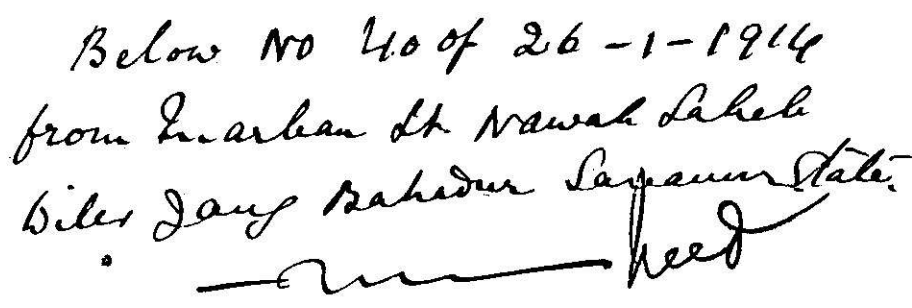 Below No 40 of 26-1-1914
from Inarban Lt Nawab Saheb
Diler Jang Bahadur Savanur State.